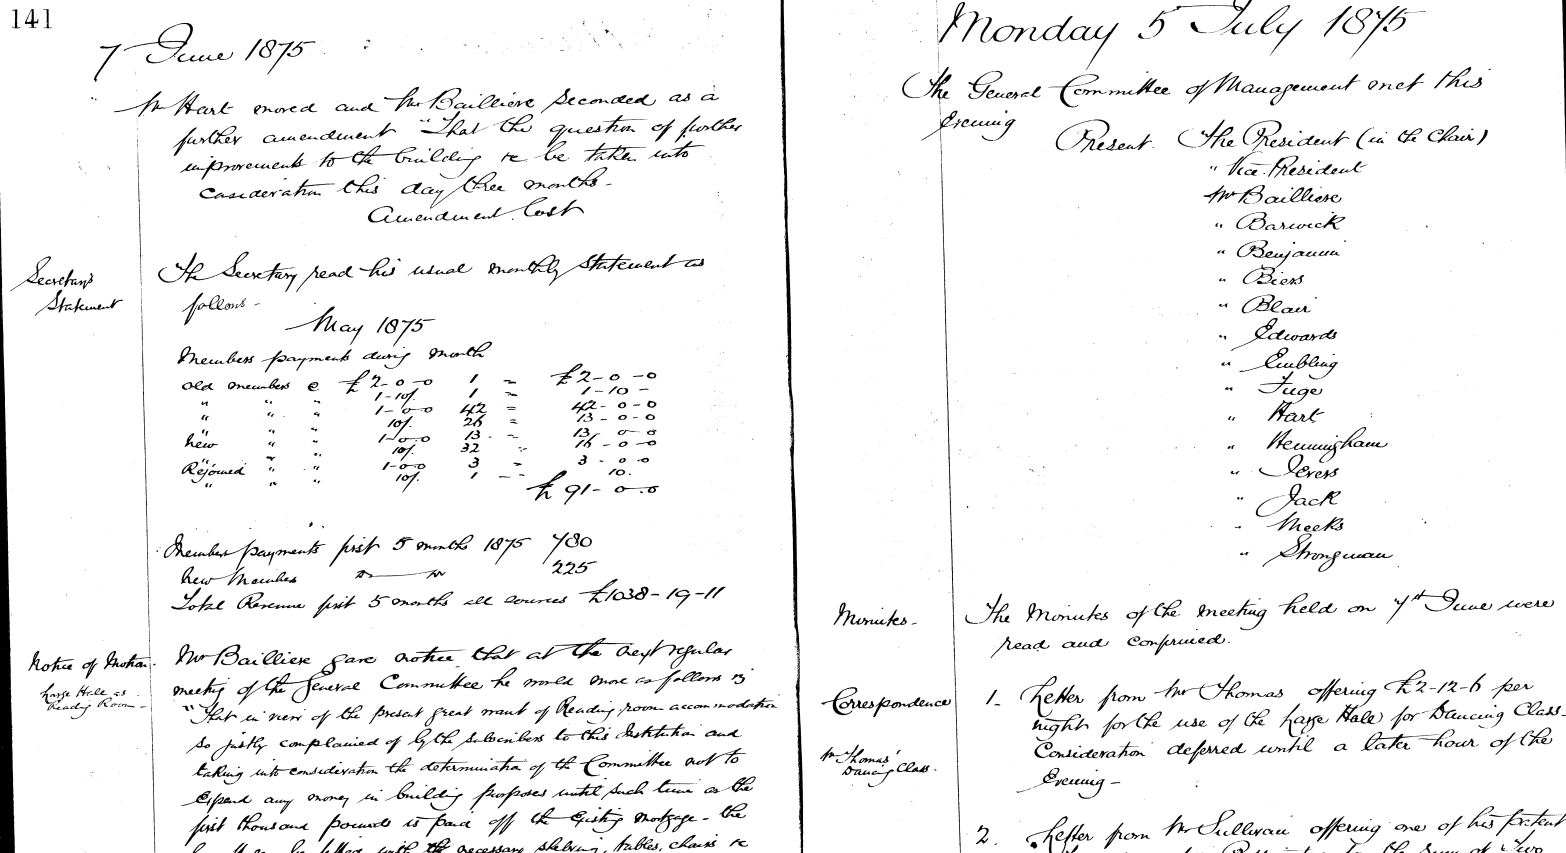 141
7 June 1875
Mr Hart moved and Mr Bailliere seconded as a
further amendment "That the question of further
improvements to the building &c be taken into
consideration this day three months -
Amendment lost
Secretary's
Statement
The Secretary read his usual monthly statement as
follows -
May 1875
Members payments during month
Old members @ £2-0-0 1 = £2-0-0
" " " 1-10/. 1 = 1-10-
" " " 1-0-0 42 = 42-0-0
" " " 10/. 26 = 13-0-0
New " " 1-0-0 13 - 13 0-0
" " " 10/. 32 " 16-0-0
Rejoined " " 1-0-0 3 - 3-0-0
" " " 10/. 1 - - 10.
£91-0-0
Members payments first 5 months 1875 780
New Members Do Do 225
Total Revenue first 5 months all sources £1038-19-11
Notice of Motion.
Large Hall as
Reading Room -
Mr Bailliere gave notice that at the next regular
meeting of the General Committee he would move as follows viz
"That in view of the present great want of Reading room accommodation
so justly complained of by the subscribers to this Institution and
taking into consideration the determination of the Committee not to
expend any money in building purposes until such time as the
first thousand pounds is paid off the existing mortgage - the
filled with the necessary shelving, tables, chairs &c
Monday 5 July 1875
The General Committee of Management met this
Evening
Present The President (in the Chair)
" Vice-President
Mr Bailliere
" Barwick
" Benjamin
" Biers
" Blair
" Edwards
" Embling
" Fuge
" Hart
" Henningham
" Ievers
" Jack
" Meeks
" Strongman
Minutes -
The Minutes of the meeting held on 7th June were
read and confirmed.
Correspondence
Mr Thomas'
Dancing Class.
1. Letter from Mr Thomas offering £2-12-6 per
night for the use of the Large Hall for Dancing Class -
Consideration deferred until a later hour of the
Evening -
2. Letter from Mr Sullivan offering one of his patent
the sum of Two